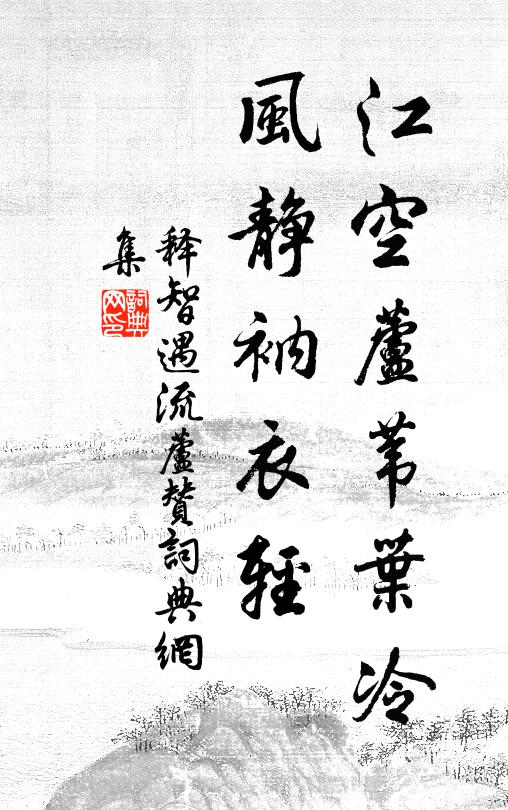 江空蘆苇葉冷
風靜衲衣輕
释智遇流蘆贊詞典網
集
詞典
网印